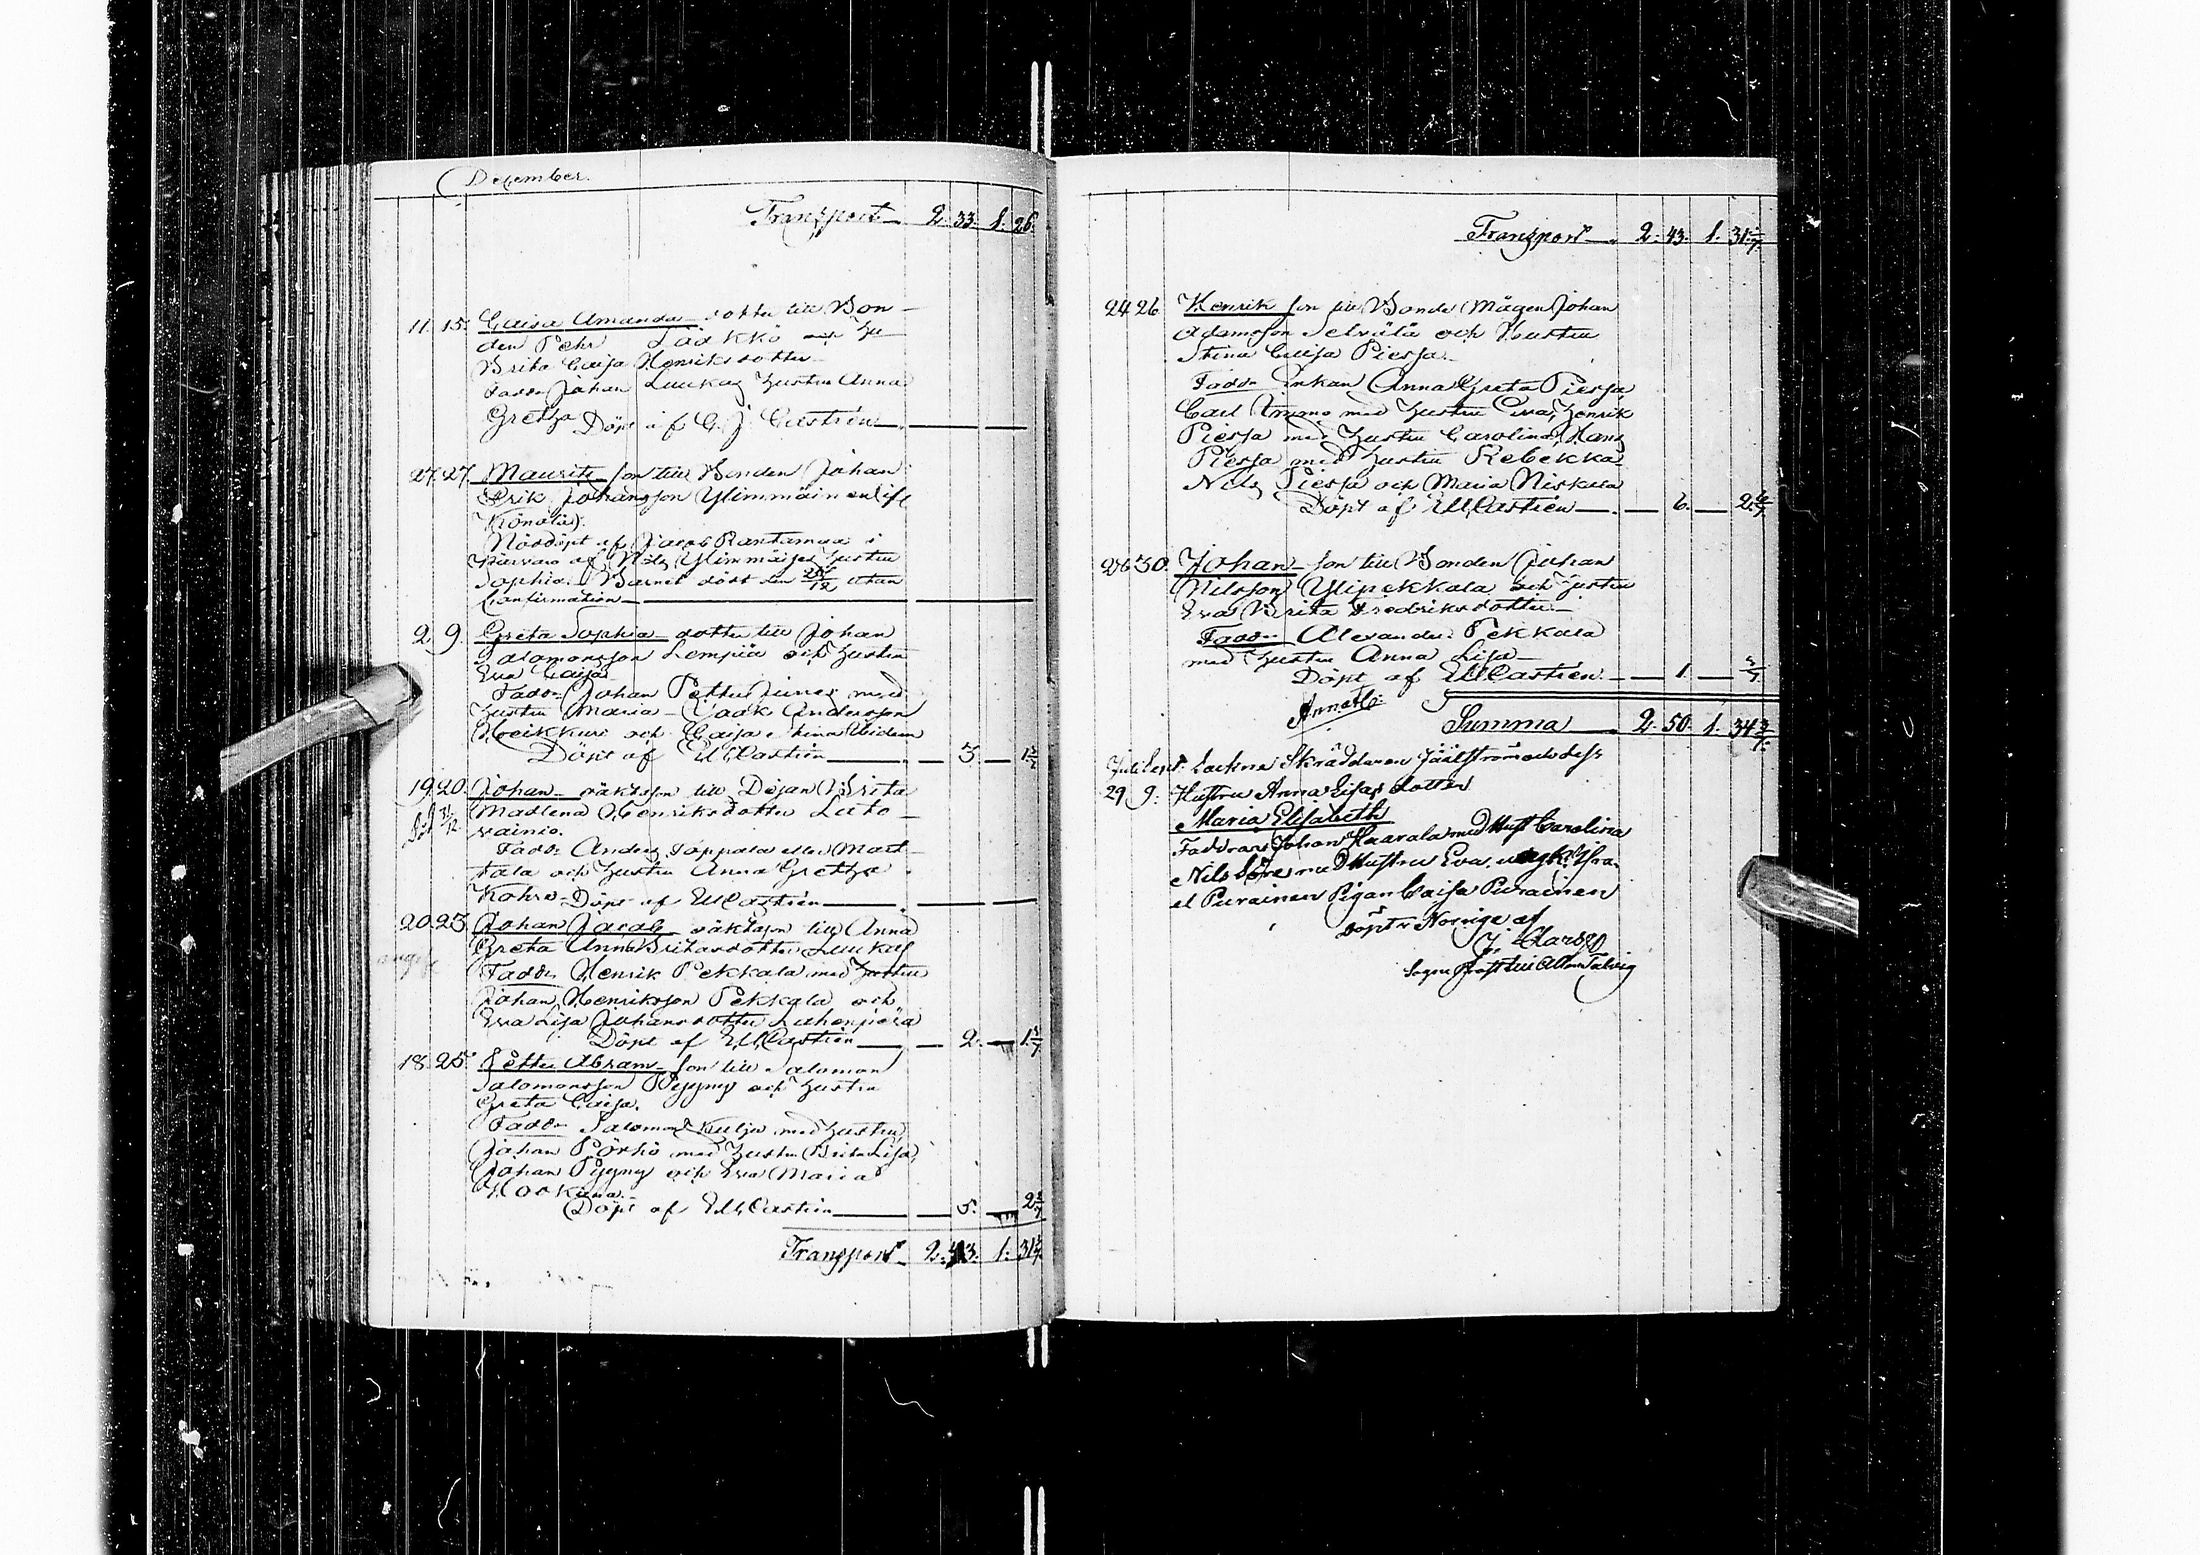 December.
Transport 2. 33. 1. 26.
11. 15. Caisa Amanda dotter till Bon-
den Pehr Laakko och Hu
Brita Caisa Henriksdotter
Fadd. Johan Luukas hustru Anna
Gretha Döpt af C. J. Castrén
27. 27. Mauritz son till Bonden Johan
Erik Johansson Ylimmäinen
Könölä).
Nöddöpt af Jacob Rantamaa i
af Nils Ylimmäises hustru
Sophia. Barnet dödt den utan
Confirmation
2. 9. Greta Sophia dotter till Johan
Salomonsson Lempiä och hustru
Eva Caisa
Fadd. Johan Petter Junes med
hustru Maria Isak Andersson
och Caisa Stina ibidem
Döpt af E M Castrén 3. 1 5/7
19. 20. Johan oäkta son till Dejan Brita
Madlena Henriksdotter Luto-
vainio.
Fadd. Anders Jappala eller Mart-
tala och hustru Anna Gretha
Kohro Döpt af E M Castrén
20. 25. Johan Jacob oäkta son till Anna
Greta Anna Britasdotter Luukas
Fadd. Henrik Pekkala med hustru
Johan Henriksson Pekkala och
Eva Lisa Johansdotter Luhenperä
Döpt af E M Castrén 2. 1 1/7
18. 25. Petter Abram son till Salomon
Salomonsson Pyyny och hustru
Greta Caisa.
Fadd. Salomon Kulju med hustru,
Johan Pörhö med hustru Brita Lisa,
Johan Pyyny och Eva Maria
Hookana.
Döpt af E M Castrén 5. 2 1/7
Transport 2. 43. 1. 31 5/7
Transport 2. 43. 1. 31 5/7
24. 26. Henrik son till Bonde Mågen Johan
Adamsson Selvälä och Hustru
Stina Caisa Piessa.
Fadd. Enkan Anna Greta Piessa,
Carl med hustru Eva, Henrik
Piessa med hustru Carolina, Hans
Piessa med hustru Rebekka
Nils Piessa och Maria Niskala
Döpt af E M Castrén 6. 2 2/7
26. 30. Johan son till Bonden Johan
Nilsson Ylipekkala och hustru
Eva Brita Fredriksdotter.
Fadd. Alexander Pekkala
med hustru Anna Lisa
Döpt af E M Castrén 1. 3/7
Summa 2. 50. 1. 34 3/7
Anmält:
Juli Sept. Sockne Skräddaren och dess
29. 9. Hustru Anna Lisas dotter
Maria Elisabeth
Faddrar Johan Haarala med Hust Carolina
Nils med Hustru Eva, ungk. Isra-
el Purainen Pigan Caisa Purainen
Döpt i Norrige af
Sogne Præst till Alten Talvig